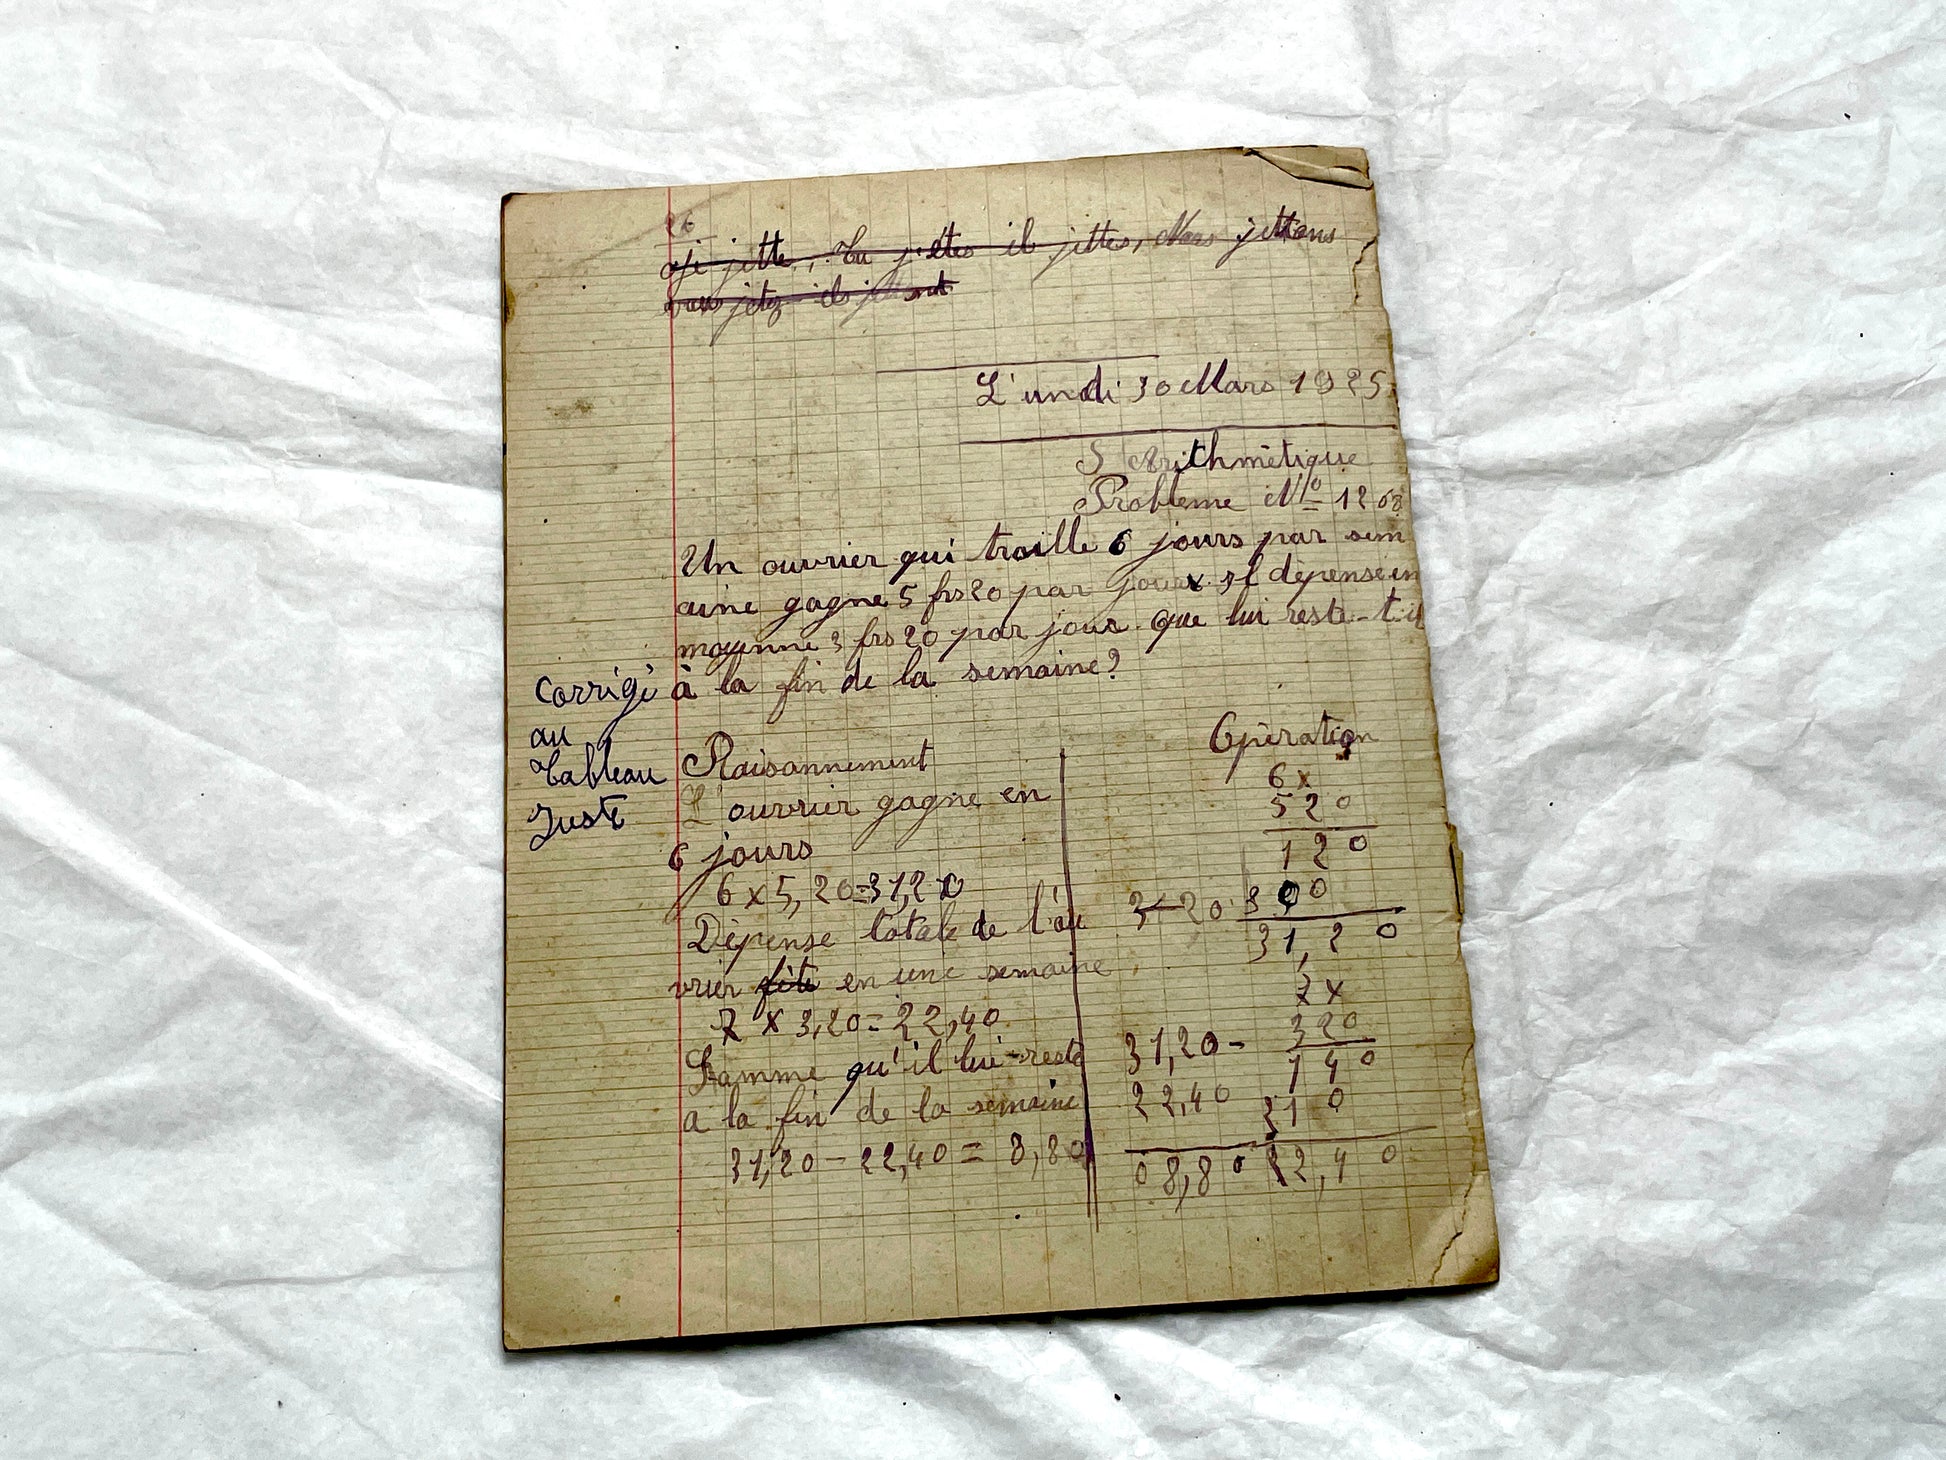 26
je jette, Tu jettes il jettes, Nous jettons
vous jetez ils jettent
L'undi 30 Mars 1925
Arithmétique
Problème N° 1268
Un ouvrier qui traille 6 jours par sem
aine gagne 5 frs 20 par jour. Il dépense en
moyenne 3 frs 20 par jour. que lui reste-t-il
corrigé à la fin de la semaine?
au
Tableau
Juste
Raisonnement
L'ouvrier gagne en
6 jours
6 x 5,20=31,20
Dépense totale de l'ou
vrier en une semaine
7 x 3,20=22,40
Somme qu'il lui reste
a la fin de la semaine
31,20-22,40=8,80
Opération
6x
520
120
3120 300
31,20
7x
320
31,20- 140
22,40 210
08,80 22,40